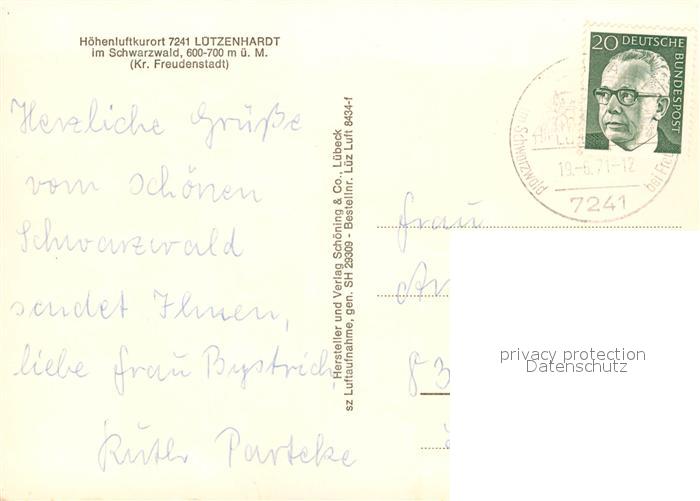 Höhenluftkurort 7241 LÜTZENHARDT
im Schwarzwald, 600-700 m ü. M.
(Kr. Freudenstadt)
Herzliche Grüße
vom schönen
Schwarzwald
sendet Ihnen,
liebe Frau Bystrich,
Ruth Parteke
Hersteller und Verlag Schöning & Co., Lübeck
sz Luftaufnahme, gen. SH 29309 - Bestellnr. Lüz Luft 8434-f
20 DEUTSCHE
BUNDESPOST
im Schwarzwald
19.-6.71-12
bei Freu
7241
Frau
privacy protection
Datenschutz